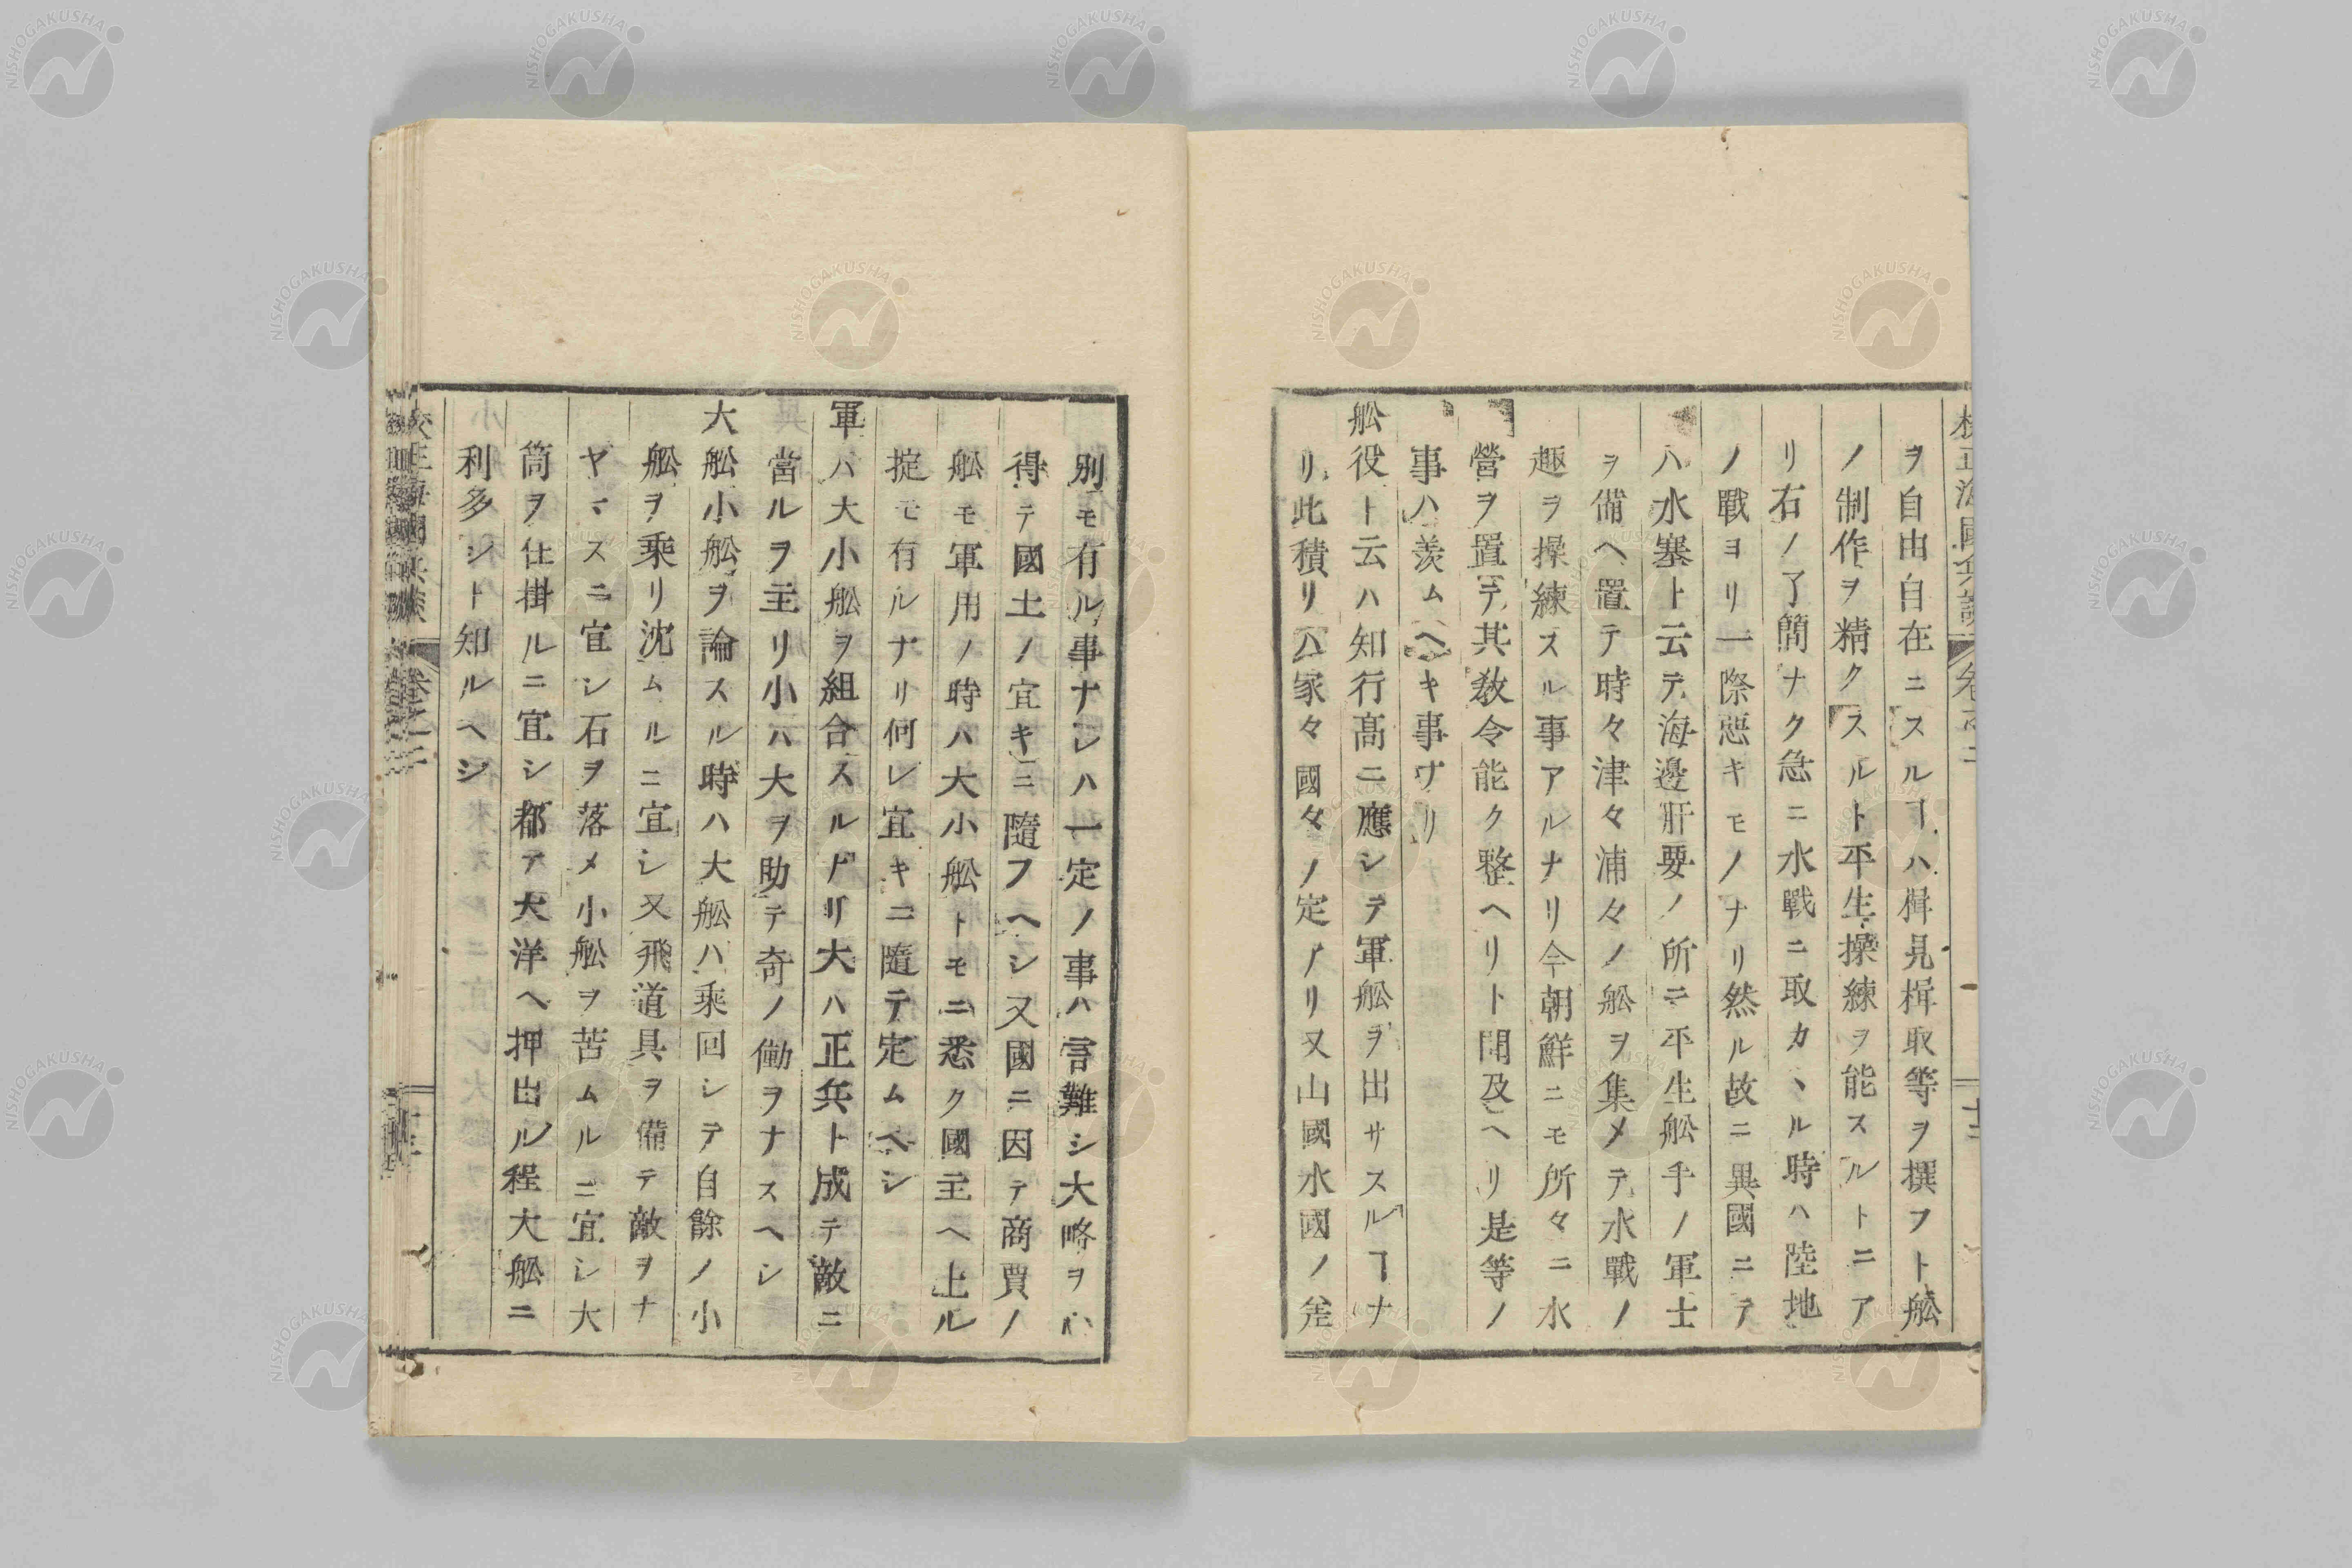 ヲ自由自在ニスルヿハ楫見楫取等ヲ撰フト舩
ノ制作ヲ精クスルト平生操練ヲ能スルトニア
リ右ノ了簡ナク急ニ水戰ニ取カヽル時ハ陸地
ノ戰ヨリ一際惡キモノナリ然ル故ニ異國ニテ
ハ水塞ト云テ海邊肝要ノ所ニ平生舩手ノ軍士
ヲ備ヘ置テ時々津々浦々ノ舩ヲ集メテ水戰ノ
趣ヲ操練スル事アルナリ今朝鮮ニモ所々ニ水
營ヲ置テ其敎令能ク整ヘリト聞及ヘリ是等ノ
事ハ羨ムヘキ事ナリ
舩役ト云ハ知行高ニ應シテ軍舩ヲ出サスルヿナ
リ此積リハ家々國々ノ定アリ又山國水國ノ差
別モ有ル事ナレハ一定ノ事ハ言難シ大略ヲ心
得テ國土ノ宜キニ隨フヘシ又國ニ因テ商賈ノ
舩モ軍用ノ時ハ大小舩トモニ悉ク國主ヘ上ル
掟モ有ルナリ何レ宜キニ隨テ定ムヘシ
軍ハ大小舩ヲ組合スルナリ大ハ正兵ト成テ敵ニ
當ルヲ主リ小ハ大ヲ助テ奇ノ働ヲナスヘシ
大舩小舩ヲ論スル時ハ大舩ハ乘回シテ自餘ノ小
舩ヲ乘リ沈ムルニ宜シ又飛道具ヲ備テ敵ヲナ
ヤマスニ宜シ石ヲ落メ小舩ヲ苦ムルニ宜シ大
筒ヲ仕掛ルニ宜シ都テ大洋ヘ押出ル程大舩ニ
利多シト知ルヘシ
NISHOGAKUSHA